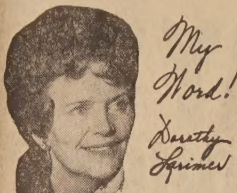 My
Word!
Dorothy
Lorimer